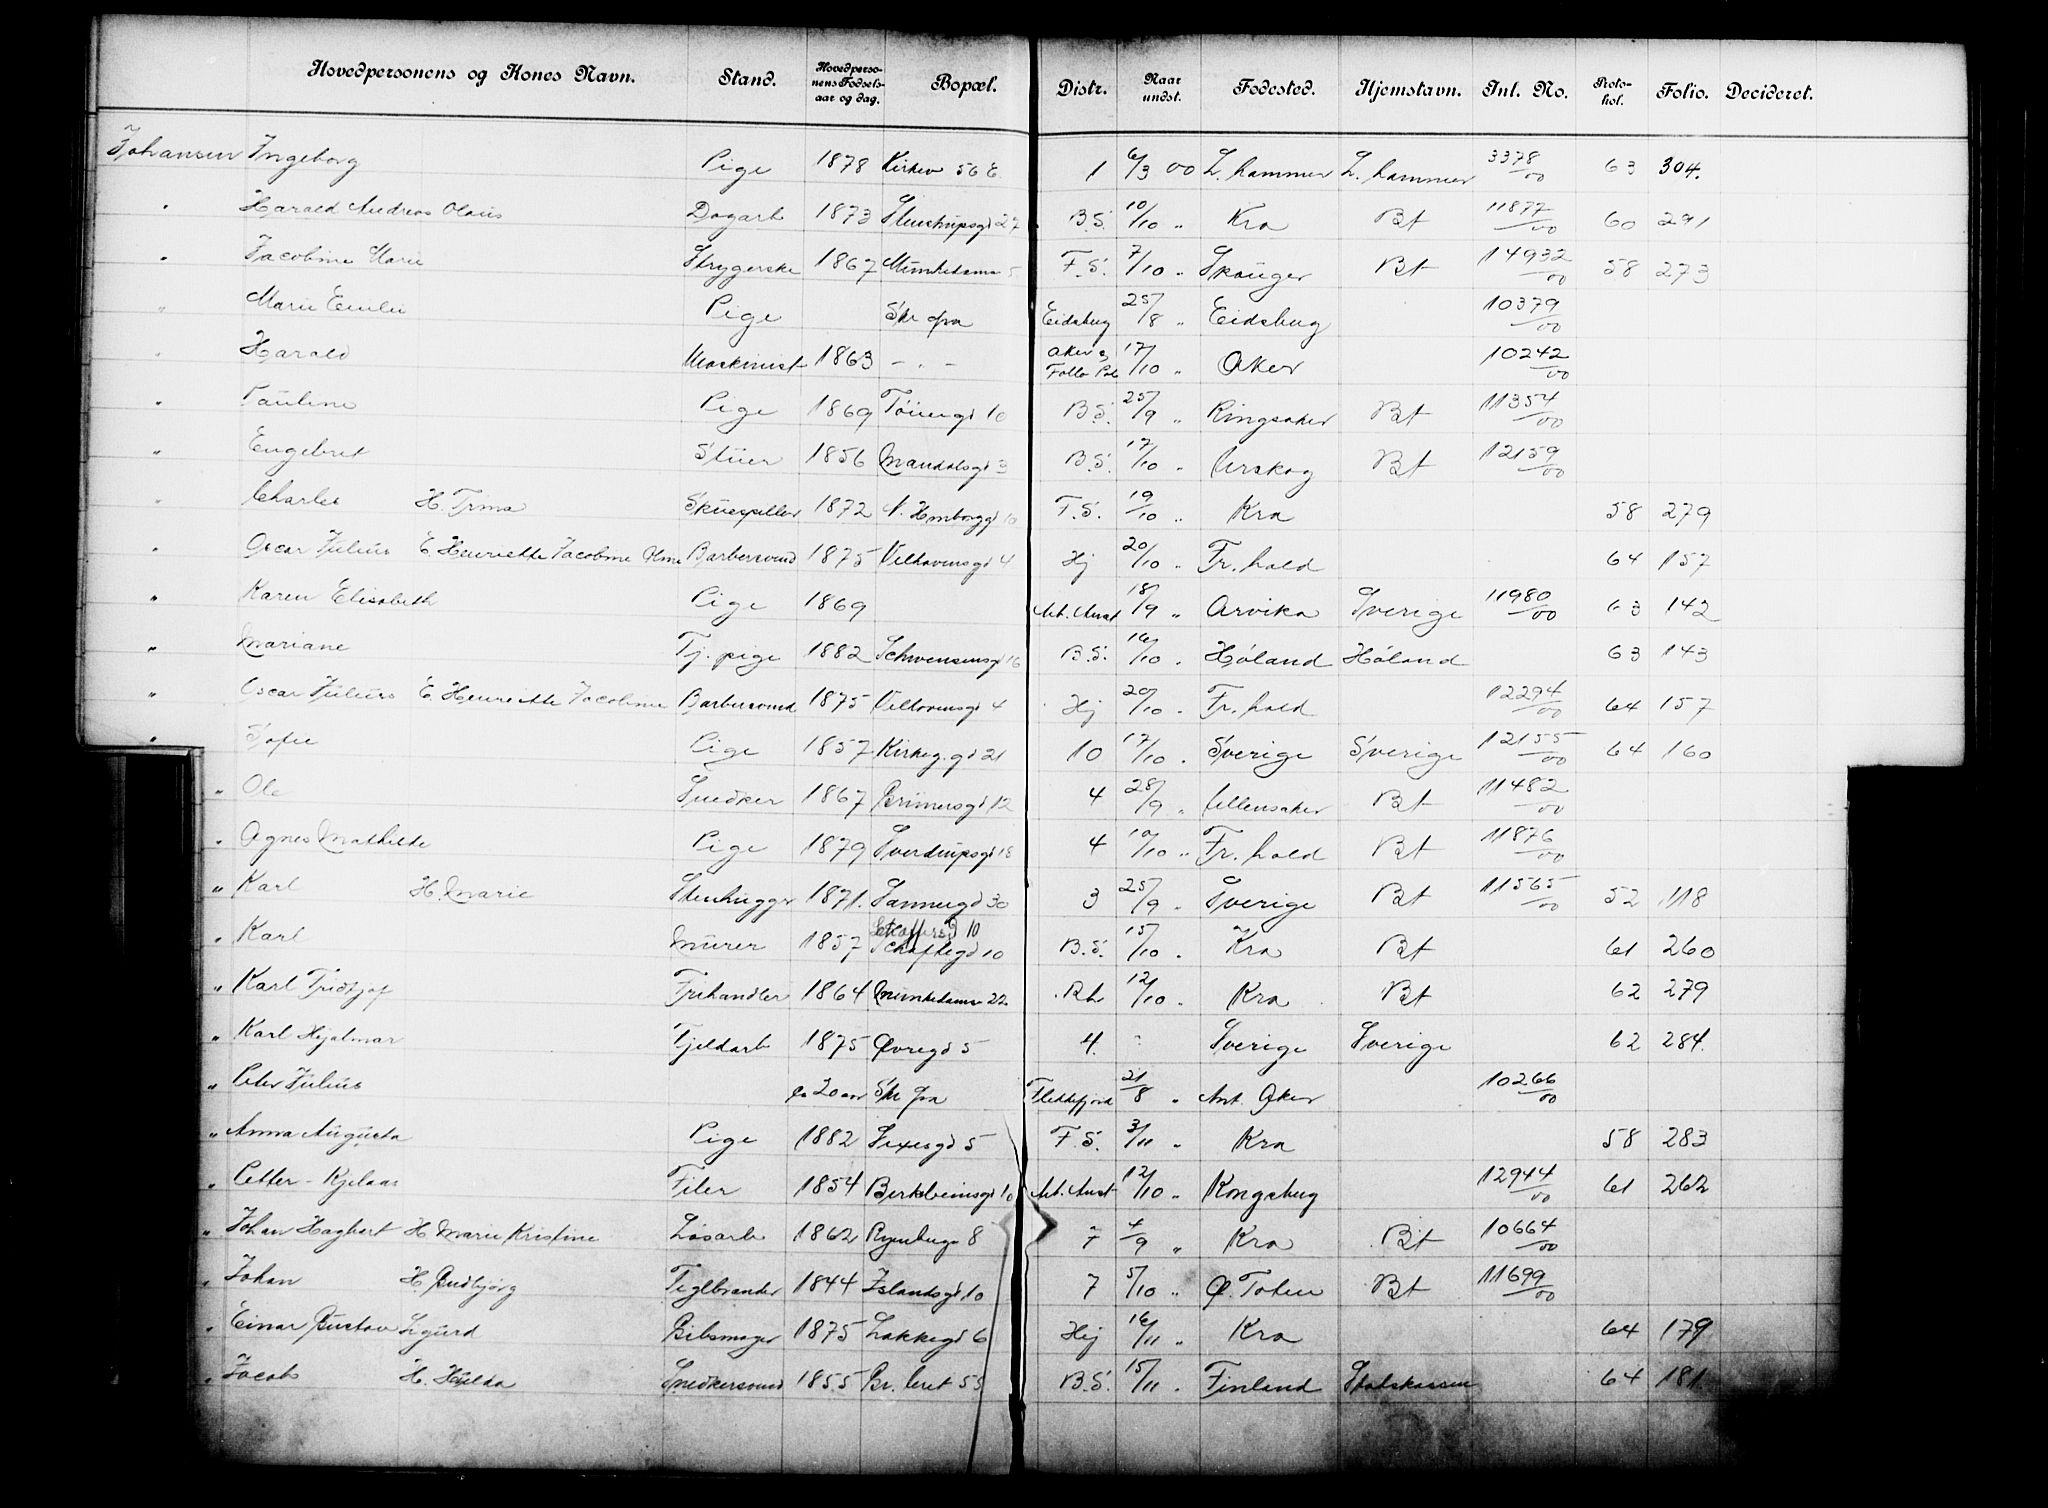 Hovedpersonens og Kones Navn. Stand. Hovedpersonens Fødselsaar og dag. Bopæl. Distr. Naar undst. Fødested. Hjemstavn. Int. No. Protokol. Folio. Decideret.
Johansen Ingeborg Pige 1878 Kirkev 56 E. 1 6/3 00 L. hammer L. hammer 3378/00 63 304.
" Harald Andreas Olaus Dagarb 1873 Stenstrupsgd 27 B.S. 10/10 " Kra Bt 11877/00 60 291
" Jacobine Marie Strygerske 1867 Munkedams 5 F.S. 7/10 " Skouger Bt 14932/00 58 273
" Marie Emilie Pige Skr fra Eidsbug 25/8 " Eidsbug 10379/00
" Harald Maskinist 1863 - " - Aker og Follo Pol 17/10 " Aker 10242/00
" Pauline Pige 1869 Töiengd 10 B.S. 25/9 " Ringsaker Bt 11354/00
" Engebret Stuer 1856 Mandalsgd 3 B.S. 17/10 " Urskog Bt 12159/00
" Charles H. Trina Skuespiller 1872 N. Hmborggd 10 F.S. 19/10 " Kra 58 279
" Oscar Julius E. Henriette Jacobine Oline Barbersvend 1875 Velhavensgd 4 Hj 20/10 " Fr. hald 64 157
" Karen Elisabeth Pige 1869 Arb. Anst 18/9 " Arvika Sverige 11980/00 63 142
" Mariane Tj. pige 1882 Schwensensgd 16 B.S. 16/10 " Höland Höland 63 143
" Oscar Julius E. Henriette Jacobine Barbersvend 1875 Velhavensgd 4 Hj 20/10 " Fr. hald 12294/00 64 157
" Sofie Pige 1857 Kirkeg. gd 21 10 17/10 " Sverige Sverige 12155/00 64 160
" Ole Snedker 1867 Brinersgd 12 4 28/9 " Ullensaker Bt 11482/00
" Agnes Mathilde Pige 1879 Sverdrupsgd 18 4 10/10 " Fr. hald Bt 11876/00
" Karl H. Marie Stenhugger 1871. Sannergd 30 3 25/9 " Sverige Bt 11565/00 52 118
Schaffersgd 10
" Karl Murer 1857 Schaftegd 10 B.S. 15/10 " Kra Bt 61 260
" Karl Fridtjof Frihandler 1864 Munkedams 22 Bh 12/10 " Kra Bt 62 279
" Karl Hjalmar Fjeldarb 1875 Øvregd 5 4. " Sverige Sverige 62 284.
" Peter Julius ca 20 aar Skr fra Flekkefjord 21/8 " Ant. Aker 10266/00
" Anna Augusta Pige 1882 Sexesgd 5 F.S. 3/11 " Kra 58 283
" Petter - Kjelaas Filer 1854 Berkebeinsgd 10 Arb. Anst 12/10 " Kongsbug 12944/00 61 262
" Johan Hagbart H. Marie Kristine Løsarb 1862 Ryenbugs 8 7 4/9 " Kra Bt 10664/00
" Johan H. Gudbjörg Teglbrænder 1844 Islandsgd 10 7 5/10 " Ø. Toten Bt 11699/00
" Einar Gustav Sigurd Gibsmager 1875 Lakkegd 6 Hj 16/11 " Kra 64 179
" Jacob H. Hulda Snedkersvend 1855 Gr. leret 55 B.S. 15/11 " Finland Statskassen 64 181.